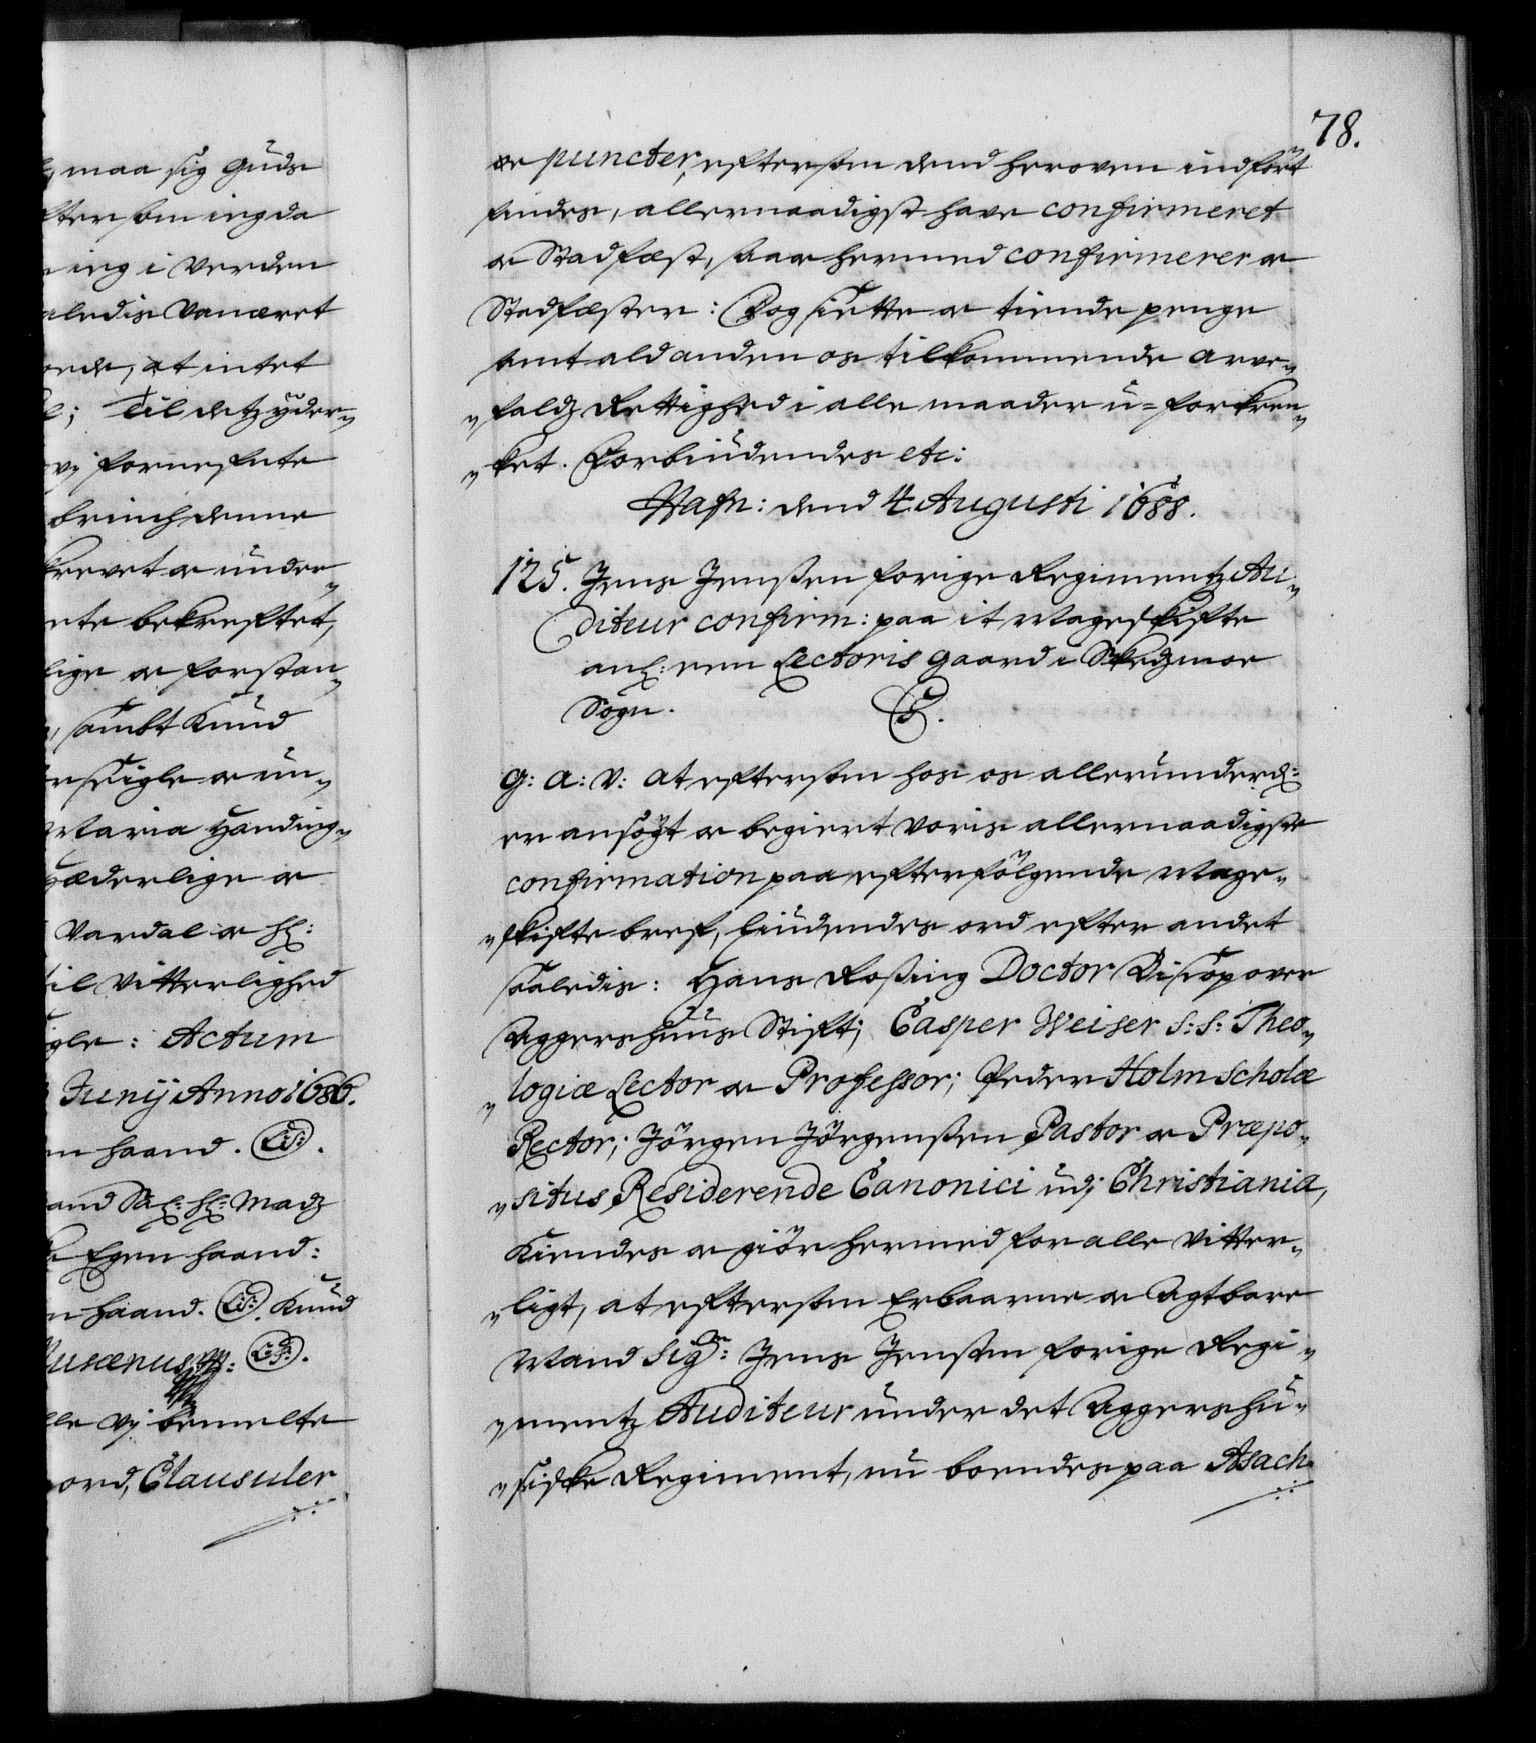 maa sig Guds
ftersom ieg da
ieg i Verden
aledis Vanæret
orde, at intet
Til detz yder-
vj fornefnte
brinch denne
krevet oc under-
nte bekreftet,
lige oc forstan-
sambt Knud
rseigle oc un-
Maria Handing-
hæderlige oc
Vardal oc hl:
til Vitterlighed
gle: Actum
Junij Anno 1686.
n haand. L.S.
and Sal: hl: Madz
Egen haand:
n haand. L.S. Knud
usænus mp: L.S.
lle vj bemelte
ord, Clausuler
78.
oc puncter, eftersom dend heroven indført
findes, allernaadigst have confirmeret
oc Stadfæst, saa hermed confirmerer oc
Stadfæster: Dog siette oc tiende penge
samt ald anden os tilkommende arve-
faldz Rettighed i alle maader u-forkren-
ket. Forbiudendes etc:
Hafn: dend 4 Augusti 1688.
125. Jens Jenssen forige Regimentz Au-
diteur confirm: paa it Mageskifte
anl: een Lectoris gaard i Skedzmoe
Sogn.
G: A: V: at eftersom hos os allerunderd:
er ansøgt oc begiert Voris allernaadigste
confirmation paa efterfølgende Mage-
skifte bref, liudendes ord efter andet
saaledis: Hans Rosing Doctor Biscop over
Aggershuus Stift; Casper Weiser S: S: Theo-
logiæ Lector oc Professor; Peder Holm Scholæ
Rector; Jørgen Jørgenssen Pastor oc Præpo-
situs, Residerende Canonici udj Christiania,
Kiendes oc giør hermed for alle Vitter-
ligt, at eftersom Erbaarne oc Agtbare
Mand Sigr: Jens Jenssen forige Regi-
mentz Auditeur under det Aggershu-
siske Regiment, nu boendes paa Asach